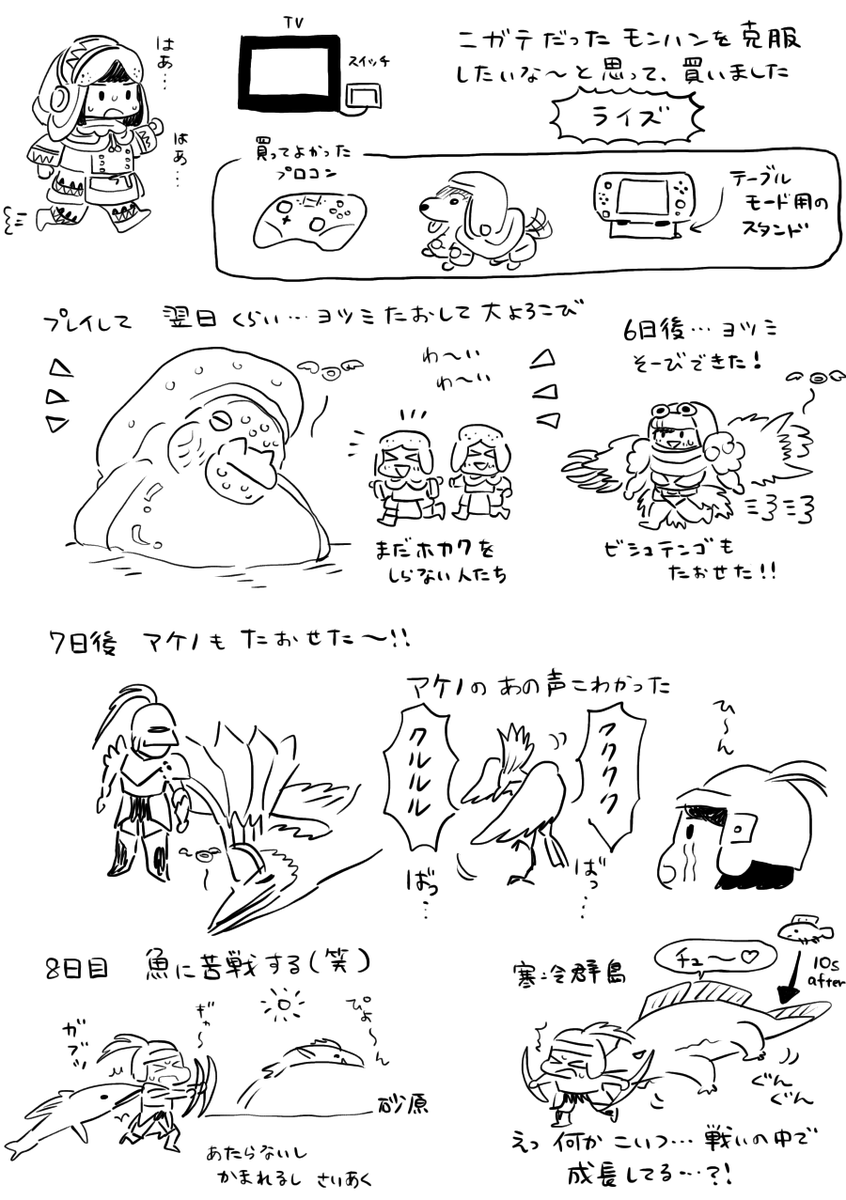 はぁ…
はぁ…
TV
スイッチ
ニガテだった モンハンを 克服
したいな〜と 思って、買いました
ライズ
買ってよかった
プロコン
テーブル
モード用の
スタンド
プレイして 翌日 くらい… ヨツミ たおして 大よろこび
わ〜い
わ〜い
まだホカクを
しらない人たち
6日後… ヨツミ
そーびできた!
ビシュテンゴも
たおせた!!
7日後 アケノも たおせた〜!!
アケノの あの声こわかった
クルルルル
ククククク
ばっ…
ばっ…
ひ〜ん
8日目 魚に苦戦する(笑)
ガブッ
ギャ〜
ぴょ〜ん
砂原
あたらないし
かまれるし さいあく
寒冷群島
チュ〜♡
10s
after
ぐん
ぐん
えっ 何か こいつ… 戦いの中で
成長してる…?!